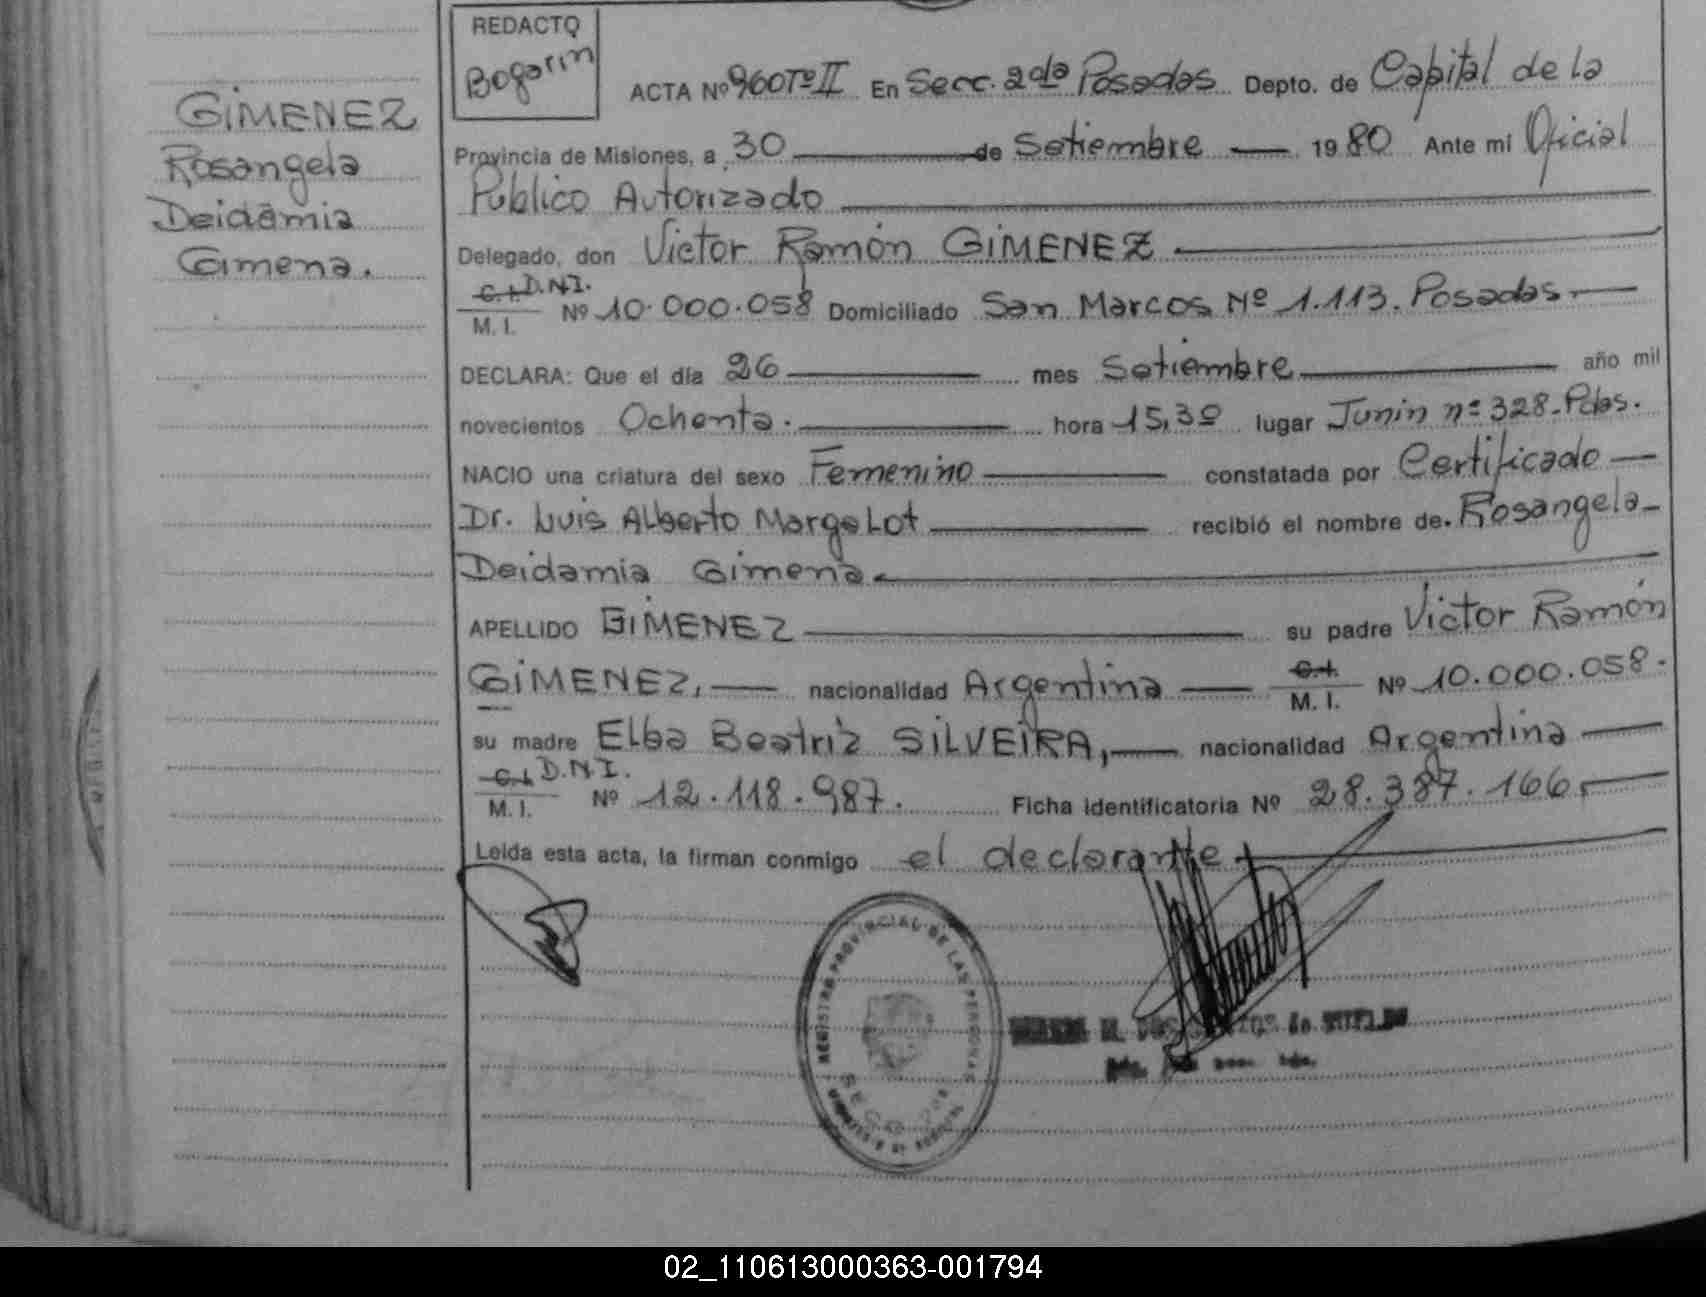 GIMENEZ
Rosangela
Deidamia
Gimena.
REDACTO
Bogarin
ACTA Nº 960 Tº II En Secc. 2da Posadas Depto. de Capital de la
Provincia de Misiones, a 30 de Setiembre 1980 Ante mi Oficial
Publico Autorizado
Delegado, don Victor Ramón GIMENEZ
C.I. D.N.I.
M. I. Nº 10.000.058 Domiciliado San Marcos Nº 1.113. Posadas.
DECLARA: Que el día 26 mes Setiembre año mil
novecientos Ochenta. hora 15,30 lugar Junin nº 328. Pdas.
NACIO una criatura del sexo Femenino constatada por Certificado
Dr. Luis Alberto Margalot recibió el nombre de Rosangela
Deidamia Gimena.
APELLIDO GIMENEZ su padre Victor Ramón
GIMENEZ, nacionalidad Argentina C.I. M. I. Nº 10.000.058.
su madre Elba Beatriz SILVEIRA, nacionalidad Argentina
C.I. D.N.I.
M. I. Nº 12.118.987. Ficha identificatoria Nº 28.387.166.
Leída esta acta, la firman conmigo el declarante
REGISTRO PROVINCIAL DE LAS PERSONAS
02_110613000363-001794